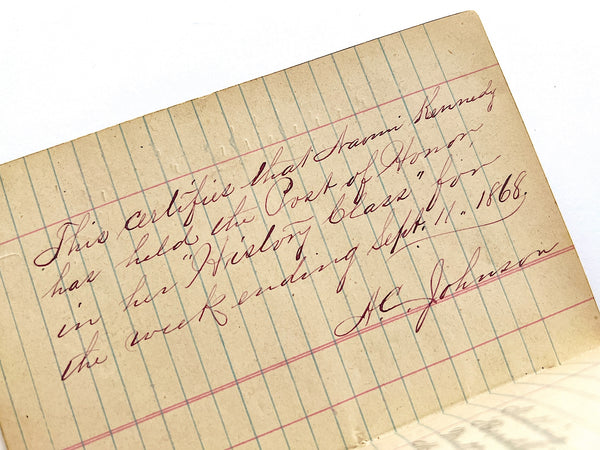 This certifies that Naomi Kennedy
has held the Post of Honor
in her "History Class" for
the week ending Sept. 11. 1868.
A.C. Johnson